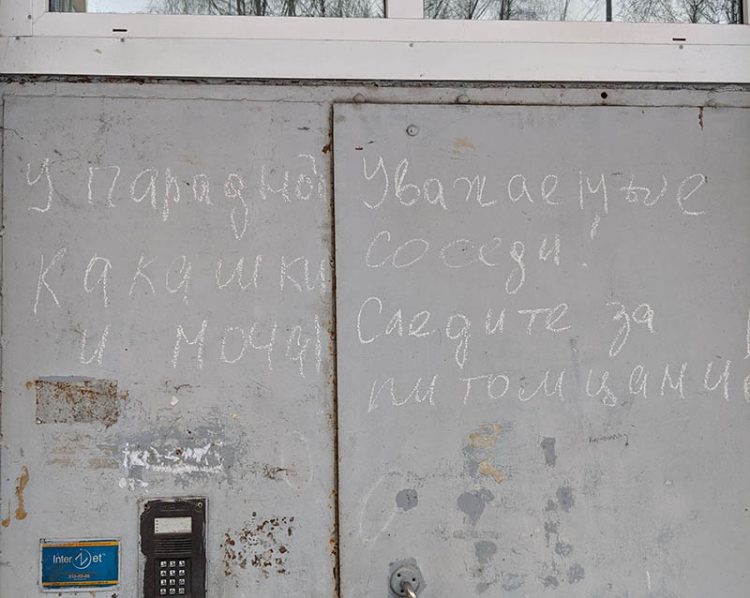 Уважаемые
соседи!
Следите за
питомцами
У парадной
какашки
и моча
InterZet